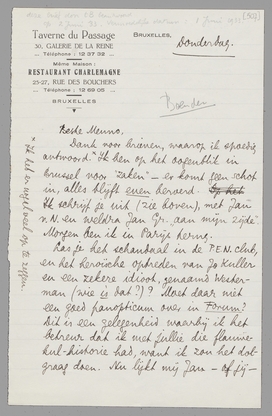 Taverne du Passage
30, GALERIE DE LA REINE
Téléphone : 12 37 32
Même Maison :
RESTAURANT CHARLEMAGNE
25-27, RUE DES BOUCHERS
Téléphone : 12 02 12
BRUXELLES
BRUXELLES,
Donderdag.
Beste Menno,
Dank voor brieven, waarop ik spoedig
antwoord. Ik ben op het oogenblik in
Brussel voor "zaken" – er komt geen schot
in, alles blijft even beroerd.
Ik schrijf je uit (zie boven), met Jan
v. N. en weldra Jan Gr. aan mijn zijde.
Morgen ben ik in Parijs terug.
Las je het schandaal in de P.E.N. Club,
en het heroïsche optreden van Jo Kuller
en een zekere idioot, genaamd Wester-
man (wie is dat?)? Moet daar niet
een goed panopticum over in Forum?
Dit is een gelegenheid, waarbij ik het
betreur dat ik met jullie die flauwe-
kul-historie had, want ik zou het dol-
graag doen. Nu lijkt mij Jan – of jij –
* Ik heb er nogal veel op te zeggen.